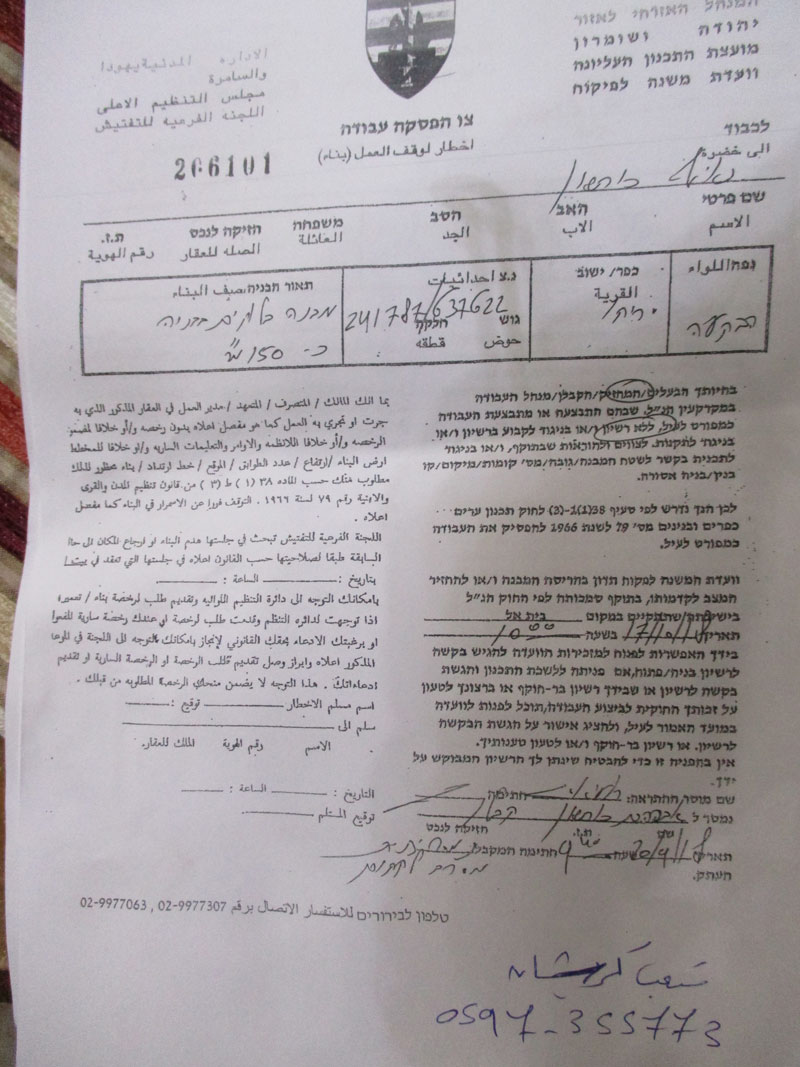 המנהל האזרחי לאזור
יהודה ושומרון
מועצת התכנון העליונה
וועדת משנה לפיקוח
الاداره المدنية يهودا
والسامرة
مجلس التنظيم الاعلى
اللجنه الفرعيه للتفتيش
צו הפסקה עבודה
اخطار لوقف العمل (بناء)
206101
לכבוד
الى حضرة
שם פרטי האב הסב משפחה חזיקה לנכס ת.ז.
الاسم الاب الجد العائلة الصله للعقار رقم الهوية
נפה اللواء כפר/ ישוב נ.צ احداثيات תאור הבניה صيف البناء
القرية
הבקעה 241787/637622 מבנה
גוש חלקה
حوض قطعه
כ- 150 מ"ר
בהיותך הבעלים/המחזיק/הקבלן/מנהל העבודה
במקרקעין הנ"ל, שבהם התבצעה או מתבצעת העבודה
כמפורט לעיל, ללא רשיון ו/או בניגוד לקבוע ברשיון ו/או
בניגוד לתקנות, לצווים ולהוראות שבתוקף, ו/או בניגוד
לתכנית בקשר לשטח המבנה/גובה/מס' קומות/מיקום/קו
בנין/בניה אסורה.
לכן הנך נדרש לפי סעיף 38(1)-(3) לחוק תכנון ערים
כפרים ובנינים מס' 79 לשנת 1966 להפסיק את העבודה
כמפורט לעיל.
וועדת המשנה לפקוח תדון בהריסת המבנה ו/או להחזיר
המצב לקדמותו, בתוקף סמכותה לפי החוק הנ"ל
בישיבתה שתתקיים במקום בית אל
תאריך 17/10/18 בשעה 10 00
בידך האפשרות לפנות למזכירות הוועדה להגיש בקשה
לרשיון בניה/פתוח, אם פניתה ללשכת התכנון והגשת
בקשה לרשיון או שבידך רשיון בר-תוקף או ברצונך לטעון
על זכותך החוקית לביצוע העבודה/תוכל לפנות לוועדה
במועד האמור לעיל, ולהציג אישור על הגשת הבקשה
לרשיון. או רשיון בר-תוקף ו/או לטעון טענותיך.
אין בהפניה זו כדי להבטיח שינתן לך הרשיון המבוקש על
ידך.
שם מוסר ההתראה: חתימה
נמסר ל
שם ת.ז. חזיקה לנכס
תאריך שעה חתימת המקבל
העתק.
بما انك المالك / المتصرف / المتعهد / مدير العمل في العقار المذكور الذي به
جرت او تجري به العمل كما هو مفصل اعلاه بدون رخصه و/أو خلافا لمضمون
الرخصه و/أو خلافا للانظمه والاوامر والتعليمات الساريه و/او خلافا للمخطط
ارض البناء /ارتفاع / عدد الطوابق / الموقع / خط ارتداد / بناء محظور لذلك
مطلوب منك حسب الماده ٣٨ (١) ط (٣) من قانون تنظيم المدن والقرى
والابنية رقم ٧٩ لسنة ١٩٦٦ . التوقف فورا عن الاسمرار في البناء كما مفصل
اعلاه .
اللجنه الفرعية للتفتيش تبحث في جلستها هدم البناء او ارجاع المكان الى حالته
السابقة طبقا لصلاحيتها حسب القانون اعلاه في جلستها التي تعقد في
بتاريخ : الساعة :
بامكانك التوجه الى دائرة التنظيم اللوائيه وتقديم طلب لرخصة بناء / تعمير؛
اذا توجهت لدائره التنظم وقدمت طلب لرخصة او عندك رخصة سارية المفعول
او برغبتك الادعاء بحقك القانوني لإنجاز بامكانك التوجه الى اللجنة في
المذكور اعلاه وابراز وصل تقديم طلب الرخصة او الرخصة السارية او تقديم
ادعاءاتك . هذا التوجه لا يضمن منحك الرخصة المطلوبه من قبلك .
اسم مسلم الاخطار توقيع :
سلم الى
الاسم رقم الهوية المالك للعقار.
التاريخ : الساعة :
توقيع المستلم
טלפון לבירורים للاستفسار الاتصال برقم 02-9977307 , 02-9977063
0597-355773